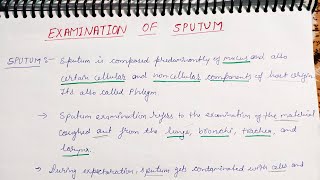 EXAMINATION OF SPUTUM
SPUTUM :- → Sputum is composed predominantly of mucus and also
certain cellular and non cellular components of host origin
Its also called Phlegm
→ Sputum examination refers to the examination of the material
coughed out from the lungs, bronchi, trachea, and
larynx.
→ During expectoration, sputum gets contaminated with cells and